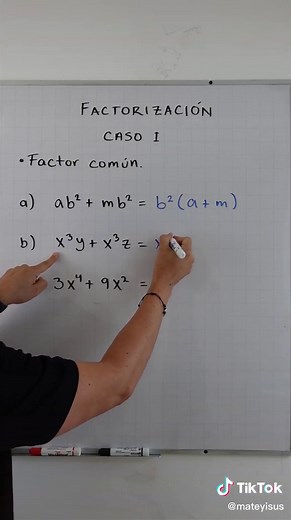 FACTORIZACIÓN
CASO I
• Factor común.
a) ab² + mb² = b²(a + m)
b) x³y + x³z = x
3x⁴ + 9x² =
TikTok
@mateyisus